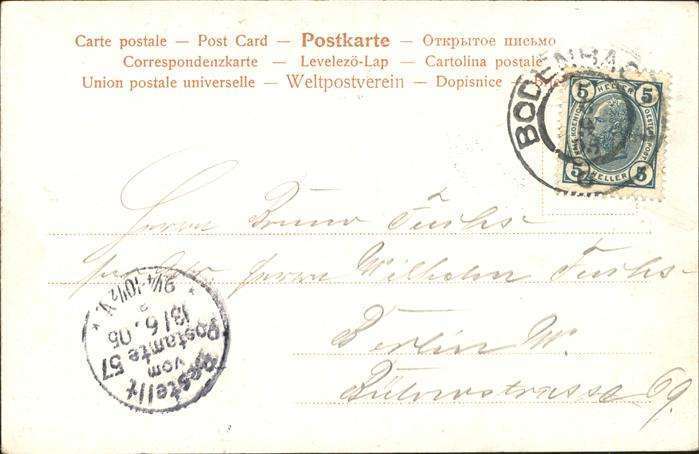 Carte postale — Post Card — Postkarte — Открытое письмо
Correspondenzkarte — Levelező-Lap — Cartolina postale
Union postale universelle — Weltpostverein — Dopisnice —
BODENBACH
5 HELLER 5
5 HELLER 5
Herrn Bruno Fuchs
Herrn Wilhelm Fuchs
Berlin W.
Bülowstrasse 69.
Bestellt
vom
Postamte 57
13/6.05
9¼-10½ V.